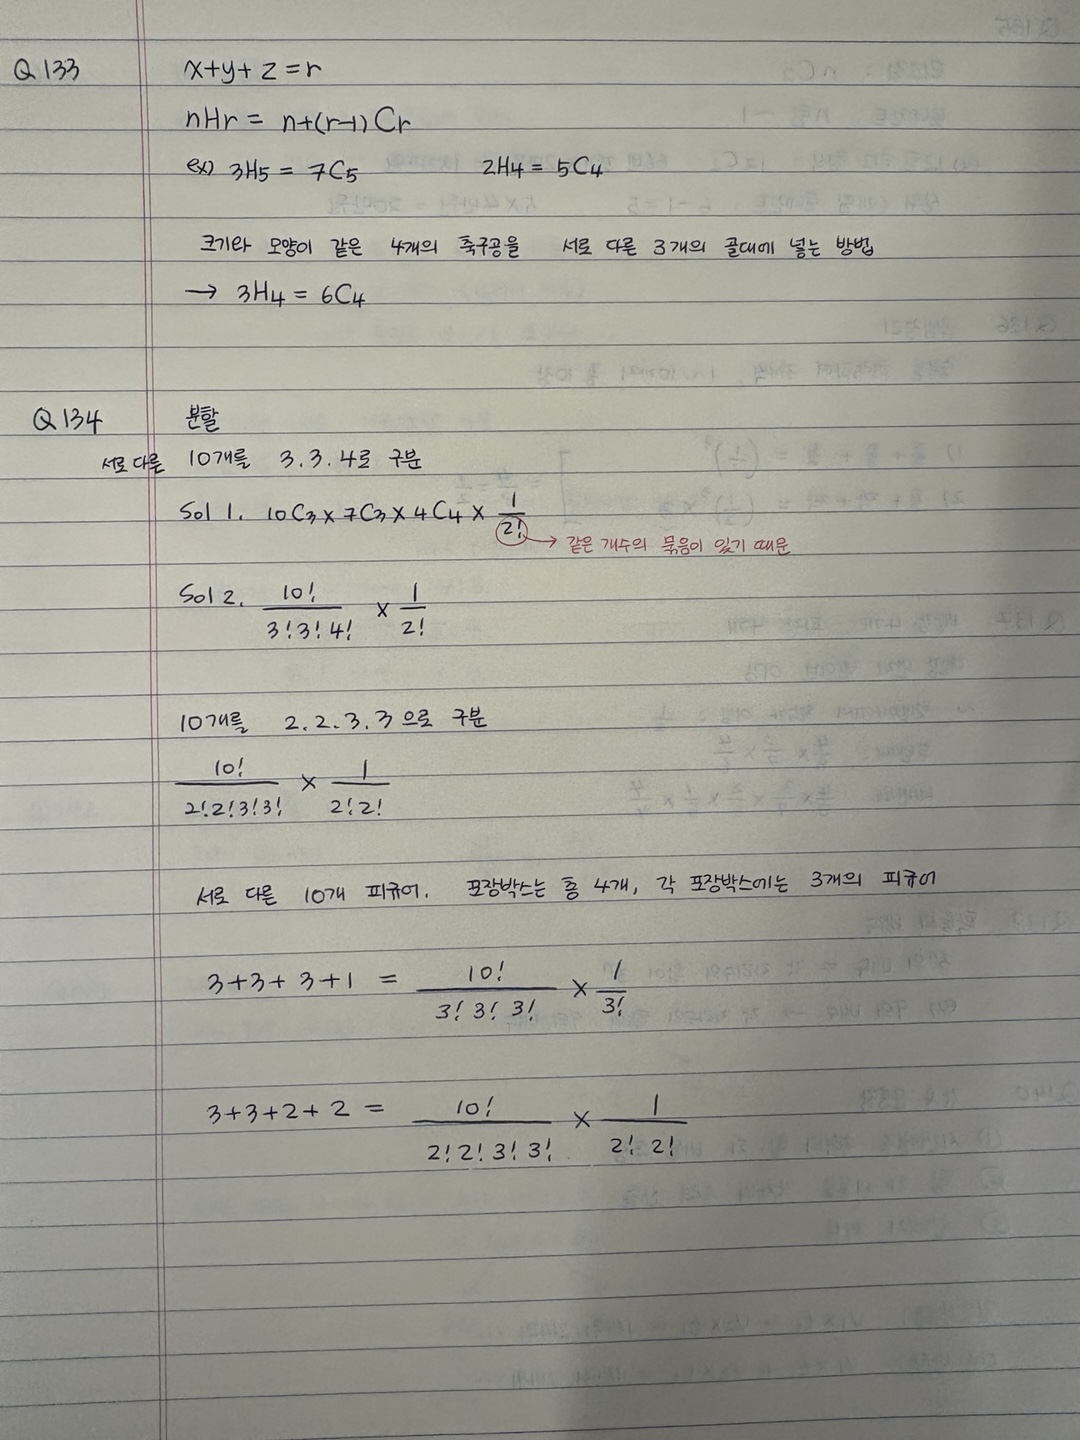 Q 133
x+y+z=r
nHr = n+(r-1)Cr
ex) 3H5 = 7C5 2H4 = 5C4
크기와 모양이 같은 4개의 축구공을 서로 다른 3개의 골대에 넣는 방법
→ 3H4 = 6C4
Q 134 분할
서로 다른 10개를 3.3.4로 구분
Sol 1. 10C3 × 7C3 × 4C4 × 1/2!
→ 같은 개수의 묶음이 있기 때문
Sol 2. 10!/3!3!4! × 1/2!
10개를 2.2.3.3 으로 구분
10!/2!2!3!3! × 1/2!2!
서로 다른 10개 피규어. 포장박스는 총 4개, 각 포장박스에는 3개의 피규어
3+3+3+1 = 10!/3! 3! 3! × 1/3!
3+3+2+2 = 10!/2! 2! 3! 3! × 1/2! 2!